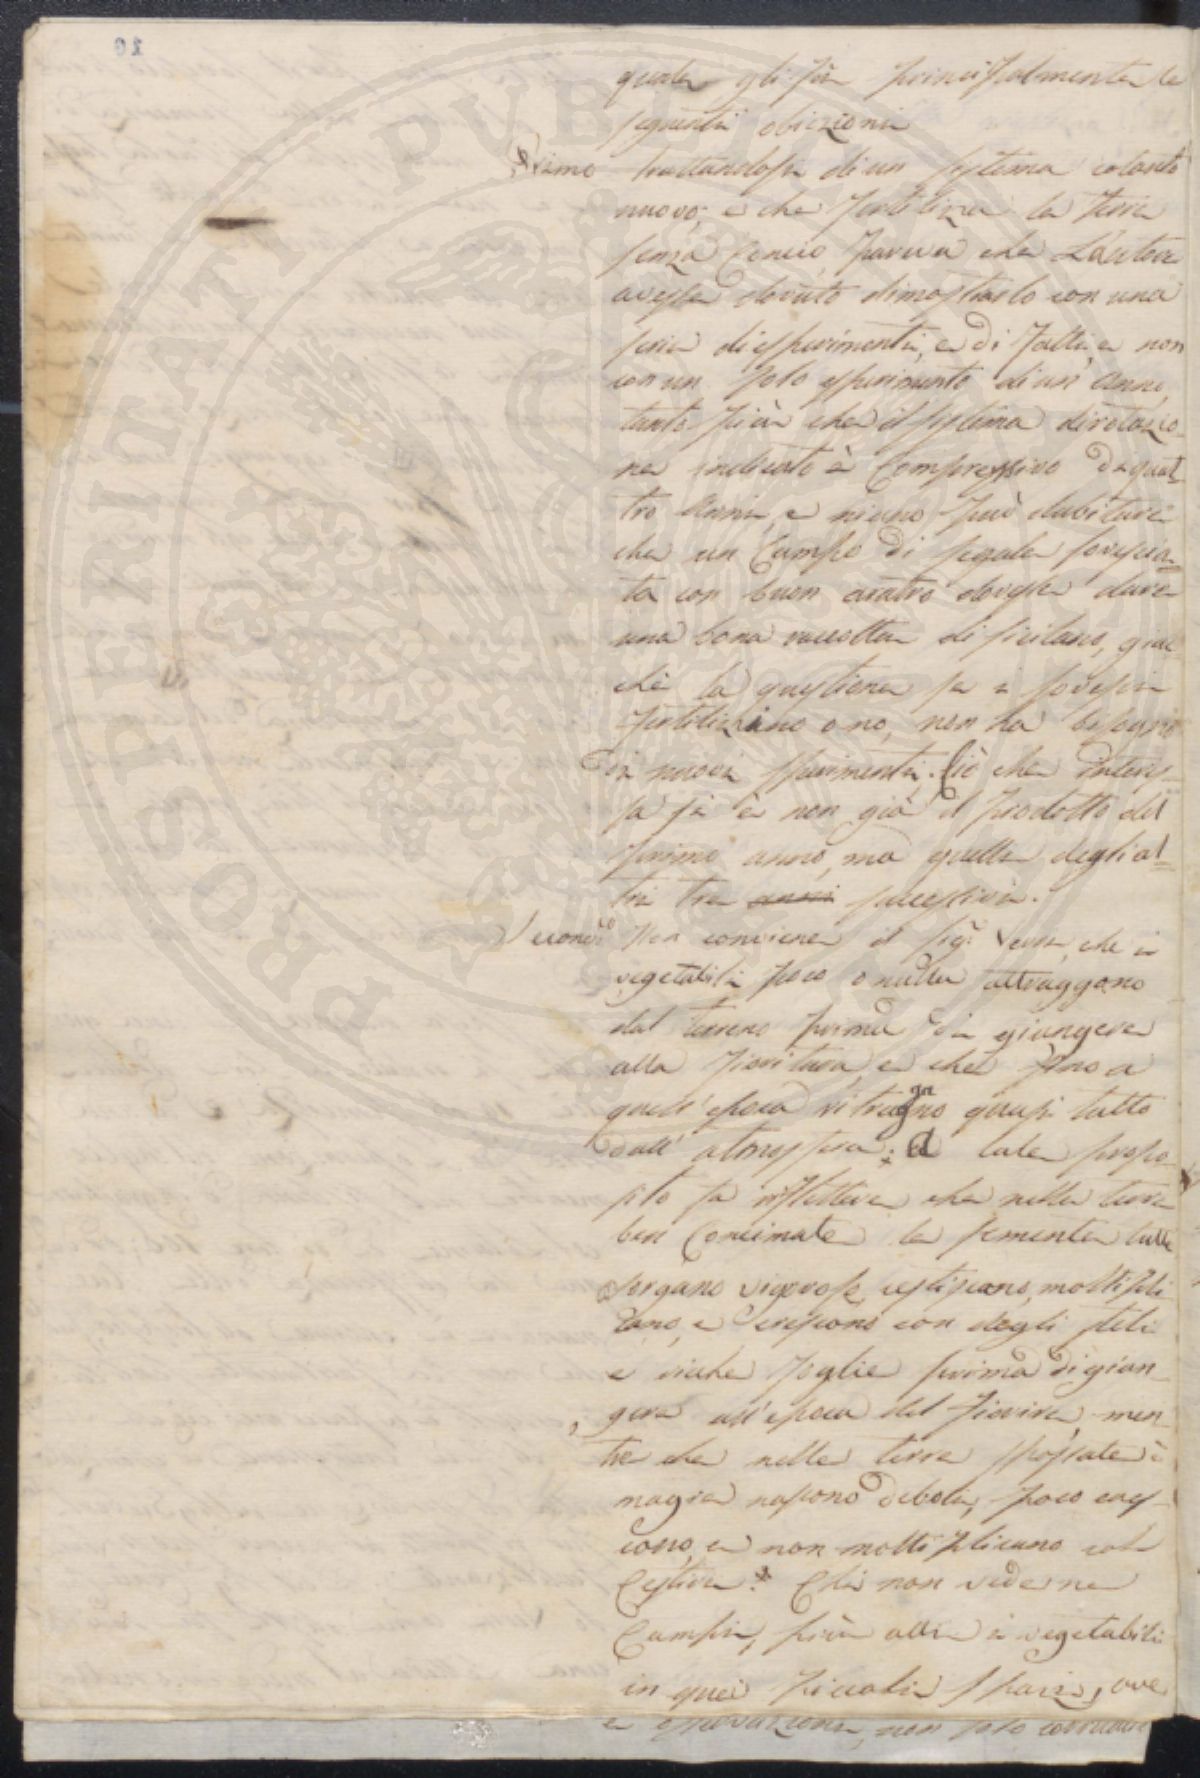 quale gli fa principalmente le
seguenti obiezioni
Primo trattandosi di un sistema cotanto
nuovo, e che fertilizza la terra
senza Concio pareva che L'autore
avesse dovuto dimostrarlo con una
serie di esperimenti, e di fatti, e non
con un solo esperimento di un' anno,
tanto più che il sistema di rotazio-
ne indicato è Compressivo di quat-
tro Anni, e niuno può dubitare
che un Campo di segale sovescia-
ta con buon aratro dovesse dare
una bona raccolta di siciliano, giac-
chè la questione se i sovesci
fertilizzino o no, non ha bisogno
di nuovi sperimenti. Ciò che interes-
sa si è non già il prodotto del
primo anno, ma quello degli al-
tri tre anni successivi.
Secondo Non conviene il Sig.r che i
vegetabili poco o nulla attraggono
dal terreno prima di giungere
alla fioritura, e che fino a
quell' epoca ritraggano quasi tutto
dall' atmosfera: A tale propo-
sito fa riflettere che nelle terre
ben Concimate le sementi tutte
sorgano vigorose, cestiscono, moltipli-
cano, e crescono con degli steli
e ricche foglie prima di giun-
gere all' epoca del fiorire, men-
tre che nelle terre spossate e
magre nascono deboli, poco cres-
cono, e non moltiplicano col
Cestire. Chi non vede ne
Campi, più alti i vegetabili
in quei piccoli spazi, ove
e osservazioni, non solo
PROSPERITATI PUBLICAE
20